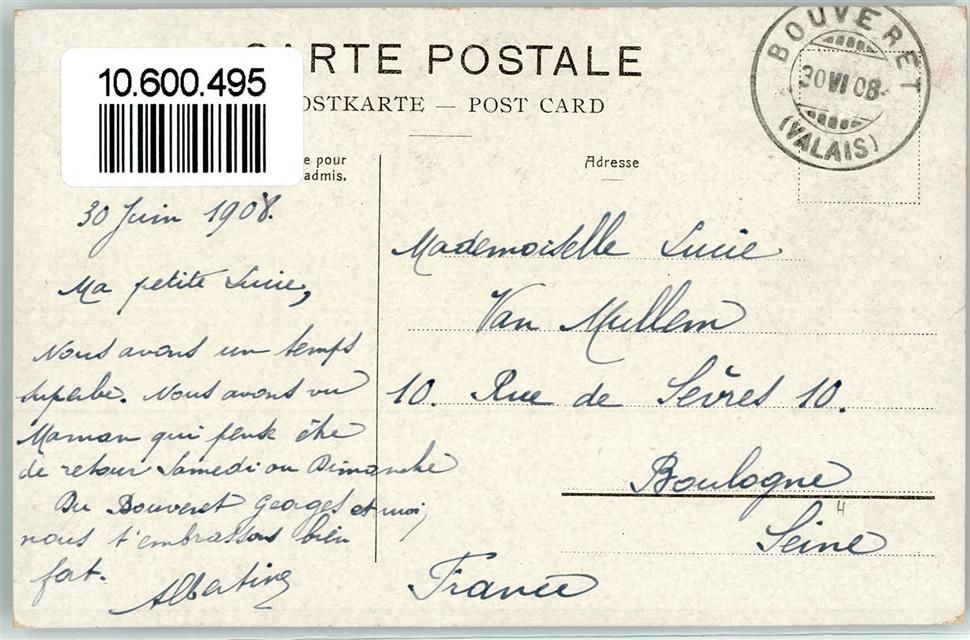 10.600.495
CARTE POSTALE
POSTKARTE — POST CARD
e pour
admis.
Adresse
BOUVERET
30 VI 08
(VALAIS)
30 Juin 1908.
Ma petite Lucie,
Nous avons un temps
superbe. Nous avons vu
Maman qui pense être
de retour Samedi ou Dimanche
Du Bouveret Georges et moi,
nous t'embrassons bien
fort.
Albertine
Mademoiselle Lucie
Van Mullem
10. Rue de Sèvres 10.
Boulogne
4
Seine
France